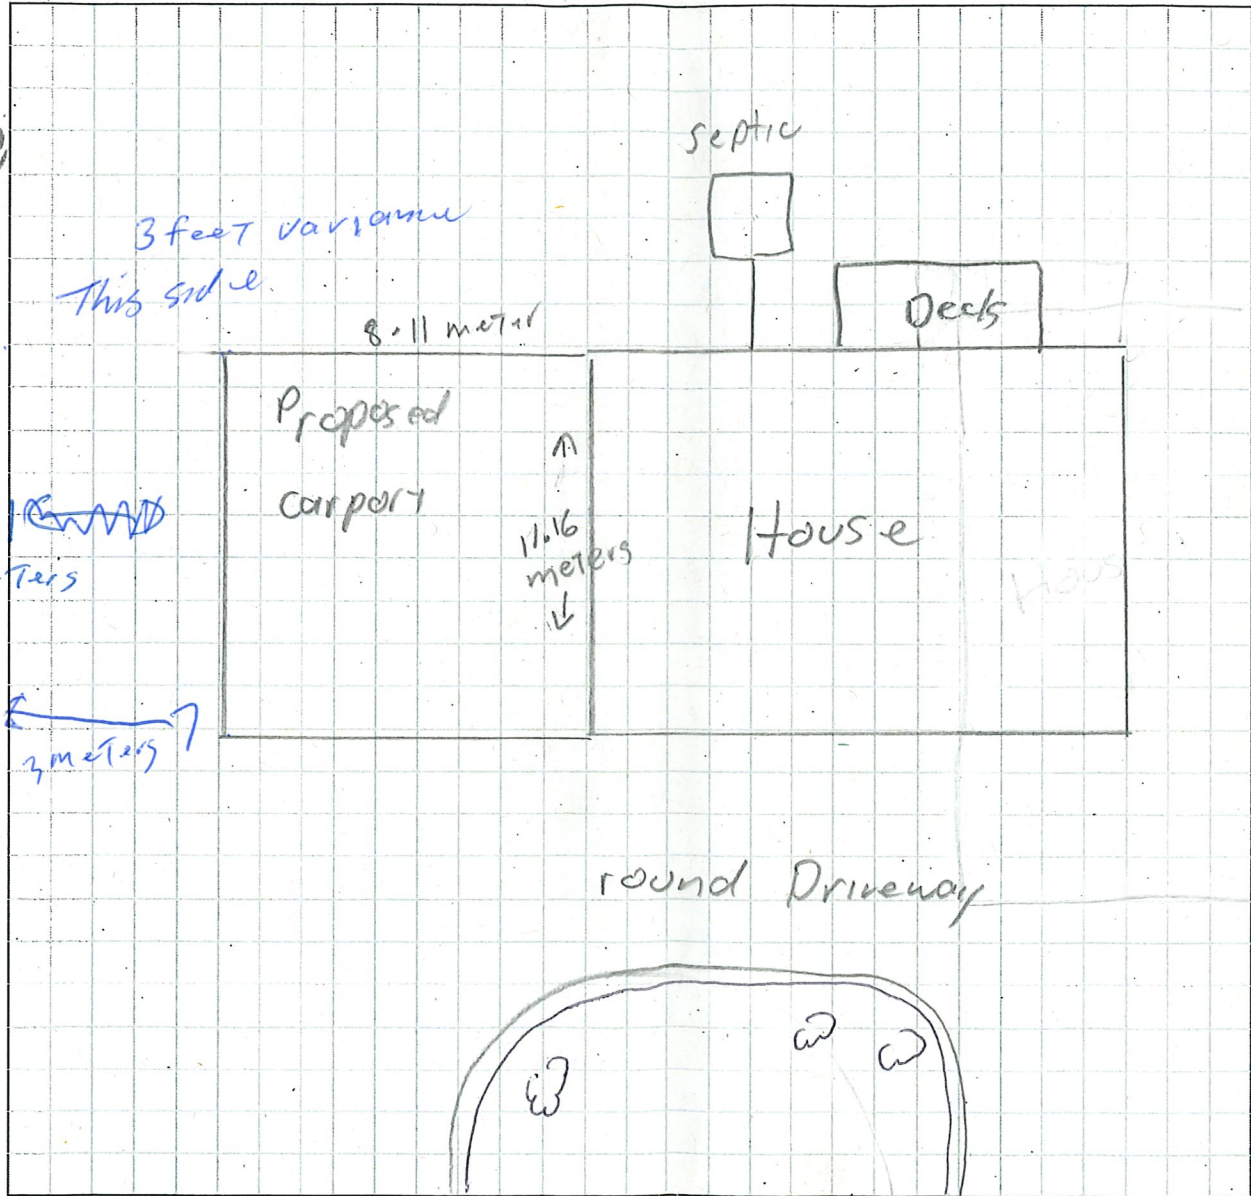 septic
3 feet variance
This side.
8.11 meter
Deck
Proposed
carport
11.16
meters
House
Hous
ters
3 meters
round Driveway